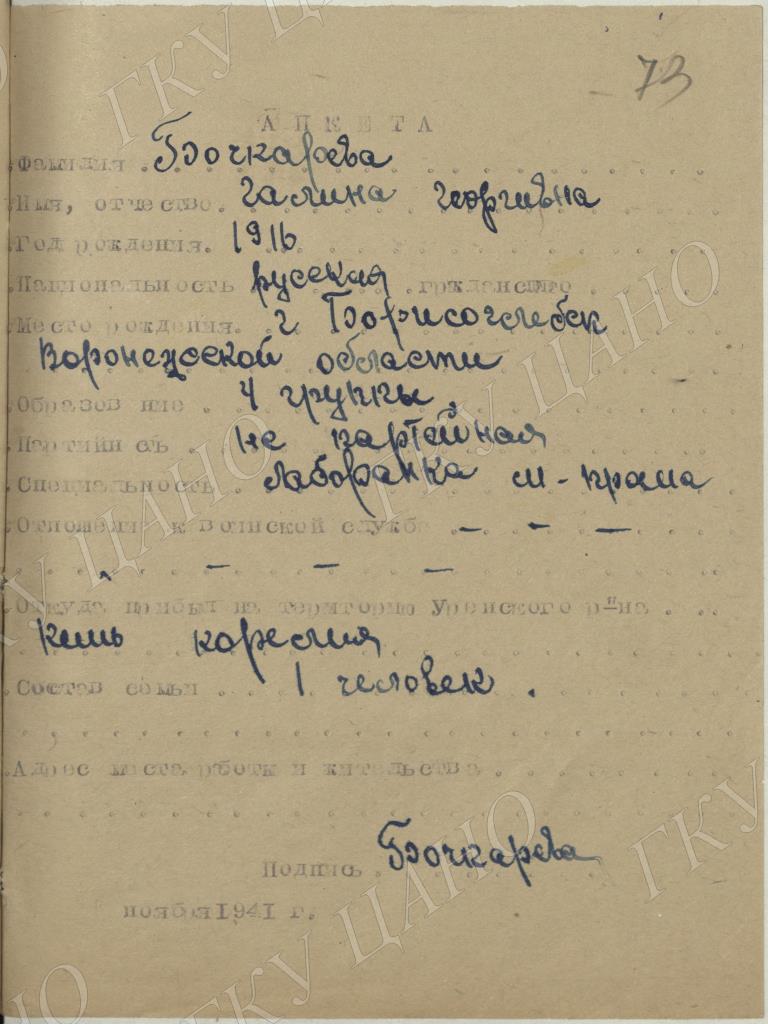 73
АНКЕТА
Фамилия . Бочкарева
Имя, отчество. Галина Георгивна
Год рождения. 1916
Национальность русская гржданство
Место рождения. г Борисоглебск
Воронежской области
Образов ние . 4 группы.
Партийн сть . не партейная
Специальность . лаборанка м-крама
Отношени к воинской службе — — —
. — — —
Откуда прибыл на територию Уренского р-на . . .
Кемь корелия
Состав семьи . . 1 человек .
Адрес места работы и жительства . . .
Бочкарева
Подпись
ноября 1941 г.
ГКУ ЦАНО